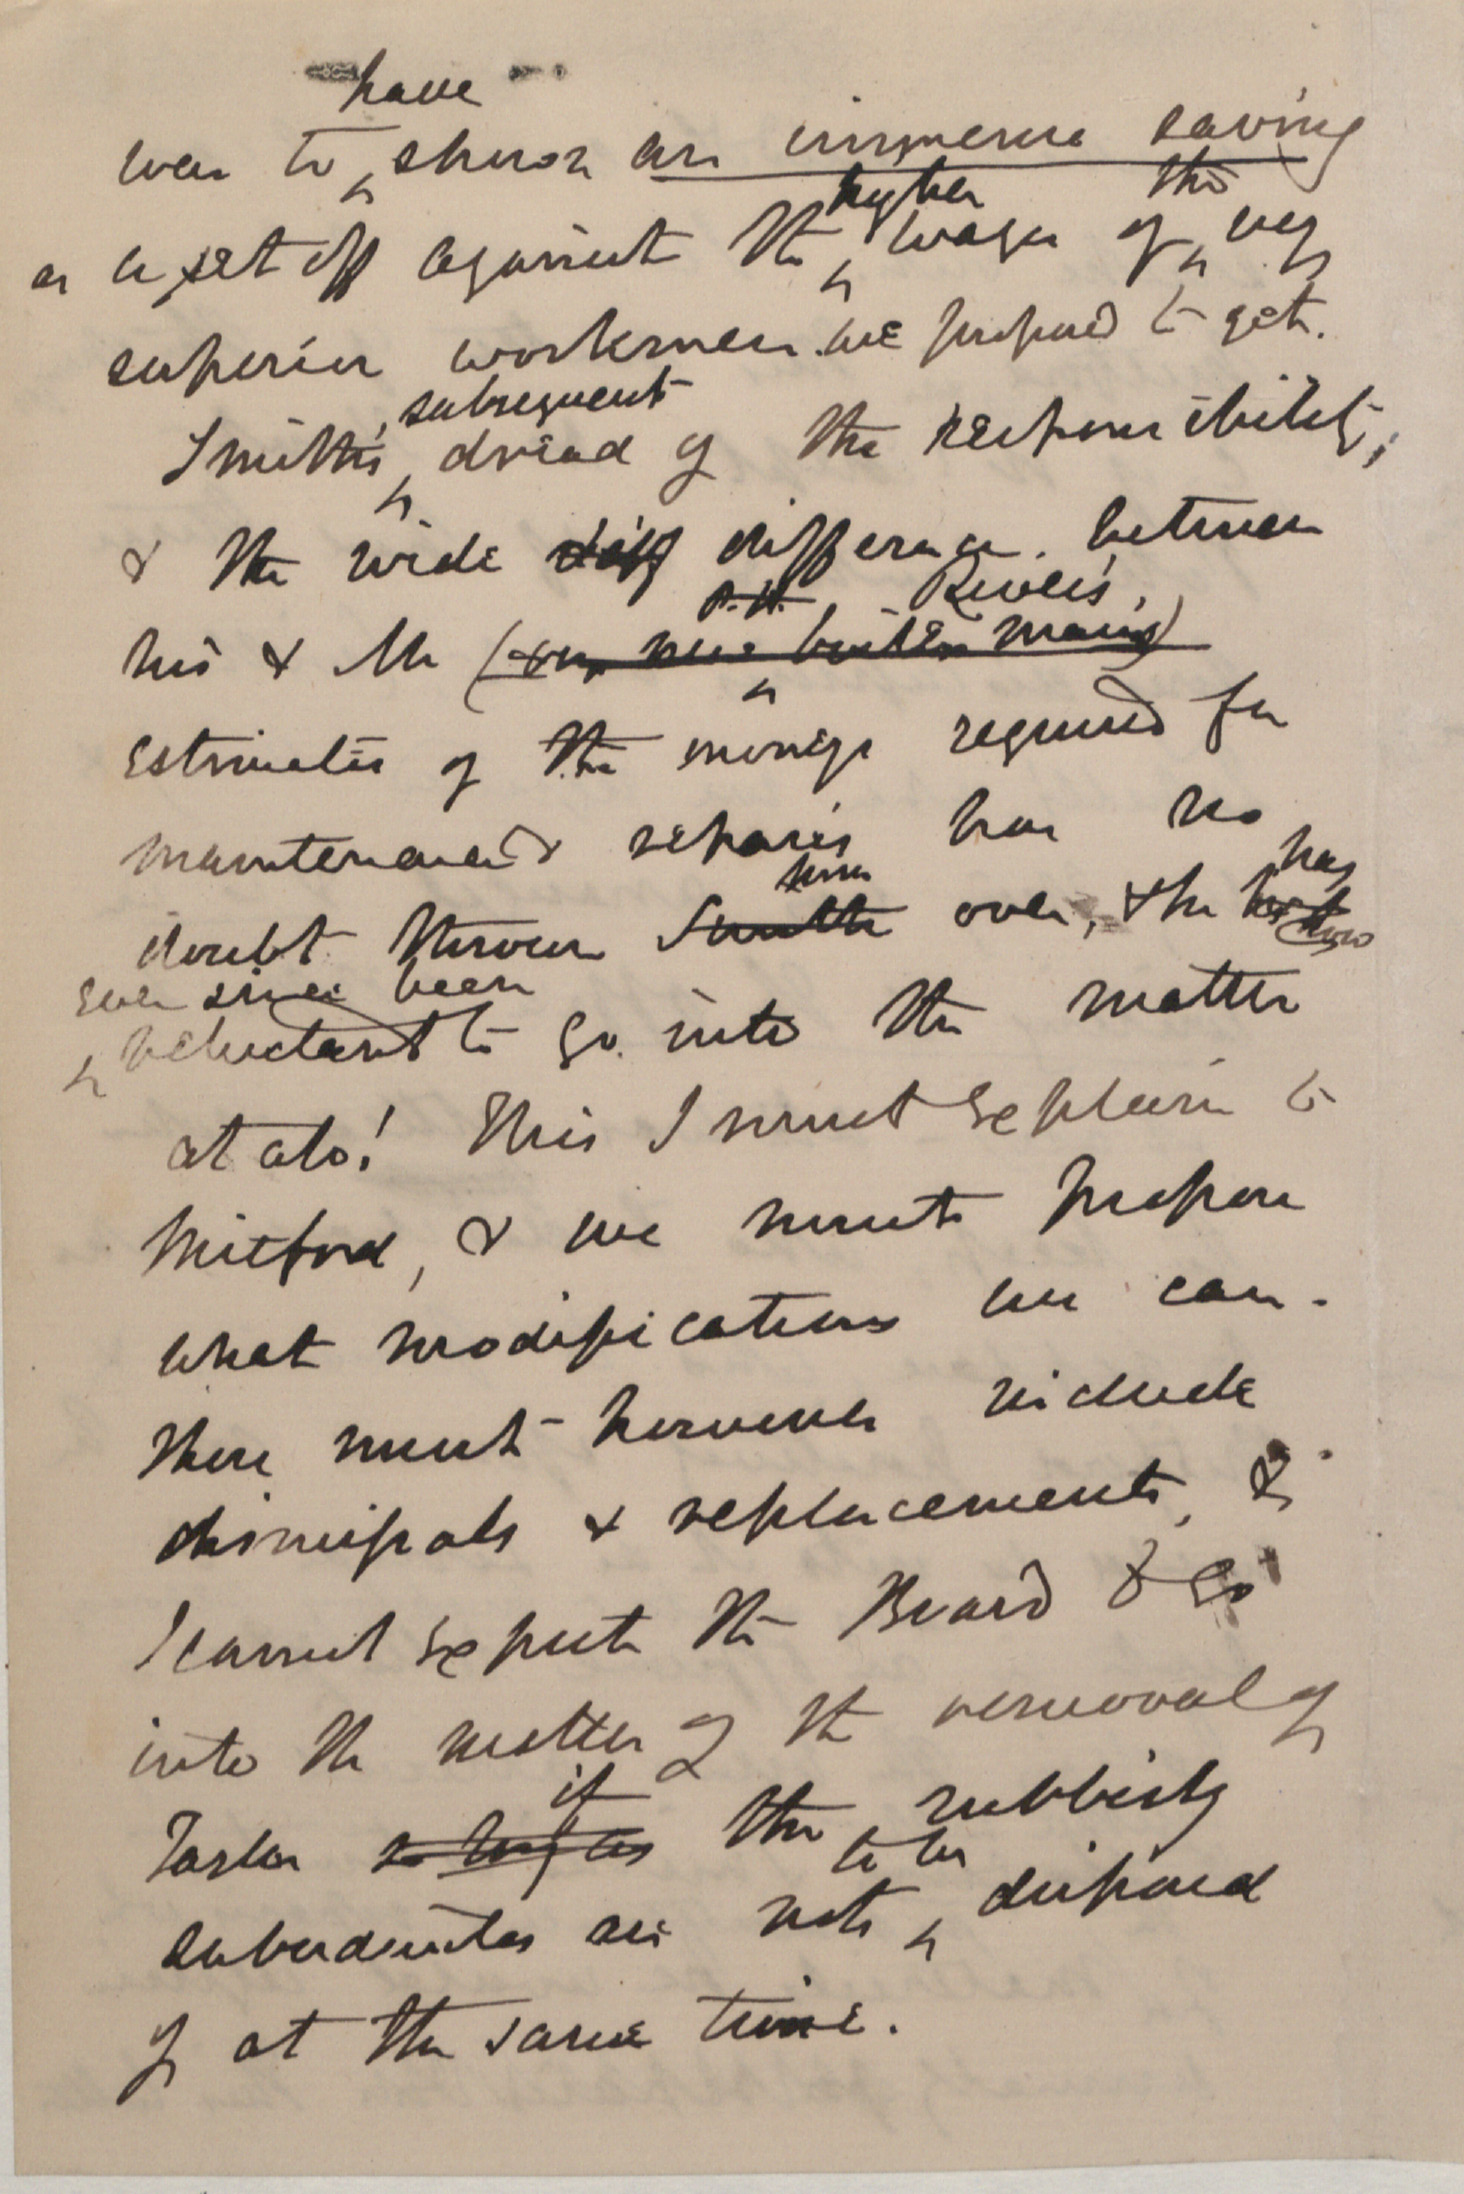 have
was to shown an immense saving
higher the
as a set off against the wages of very
superior workmen we proposed to get.
subsequent
Smith's dread of the responsibility,
& the wide diff difference between
P.H. Rivers's,
his & Mr (our new builder man's)
estimates of the moneys required for
maintenance & repairs has no
him has
doubt thrown Smith over, & he
ever since been
reluctant to go into the matter
at all! This I must explain to
Mitford, & we must propose
what modifications we can.
These must however include
dismissals & replacements, &
I cannot expect the Board to go
into the matter of the removal of
if
Taylor so long as the rubbishy
to be
subordinates are not disposed
of at the same time.